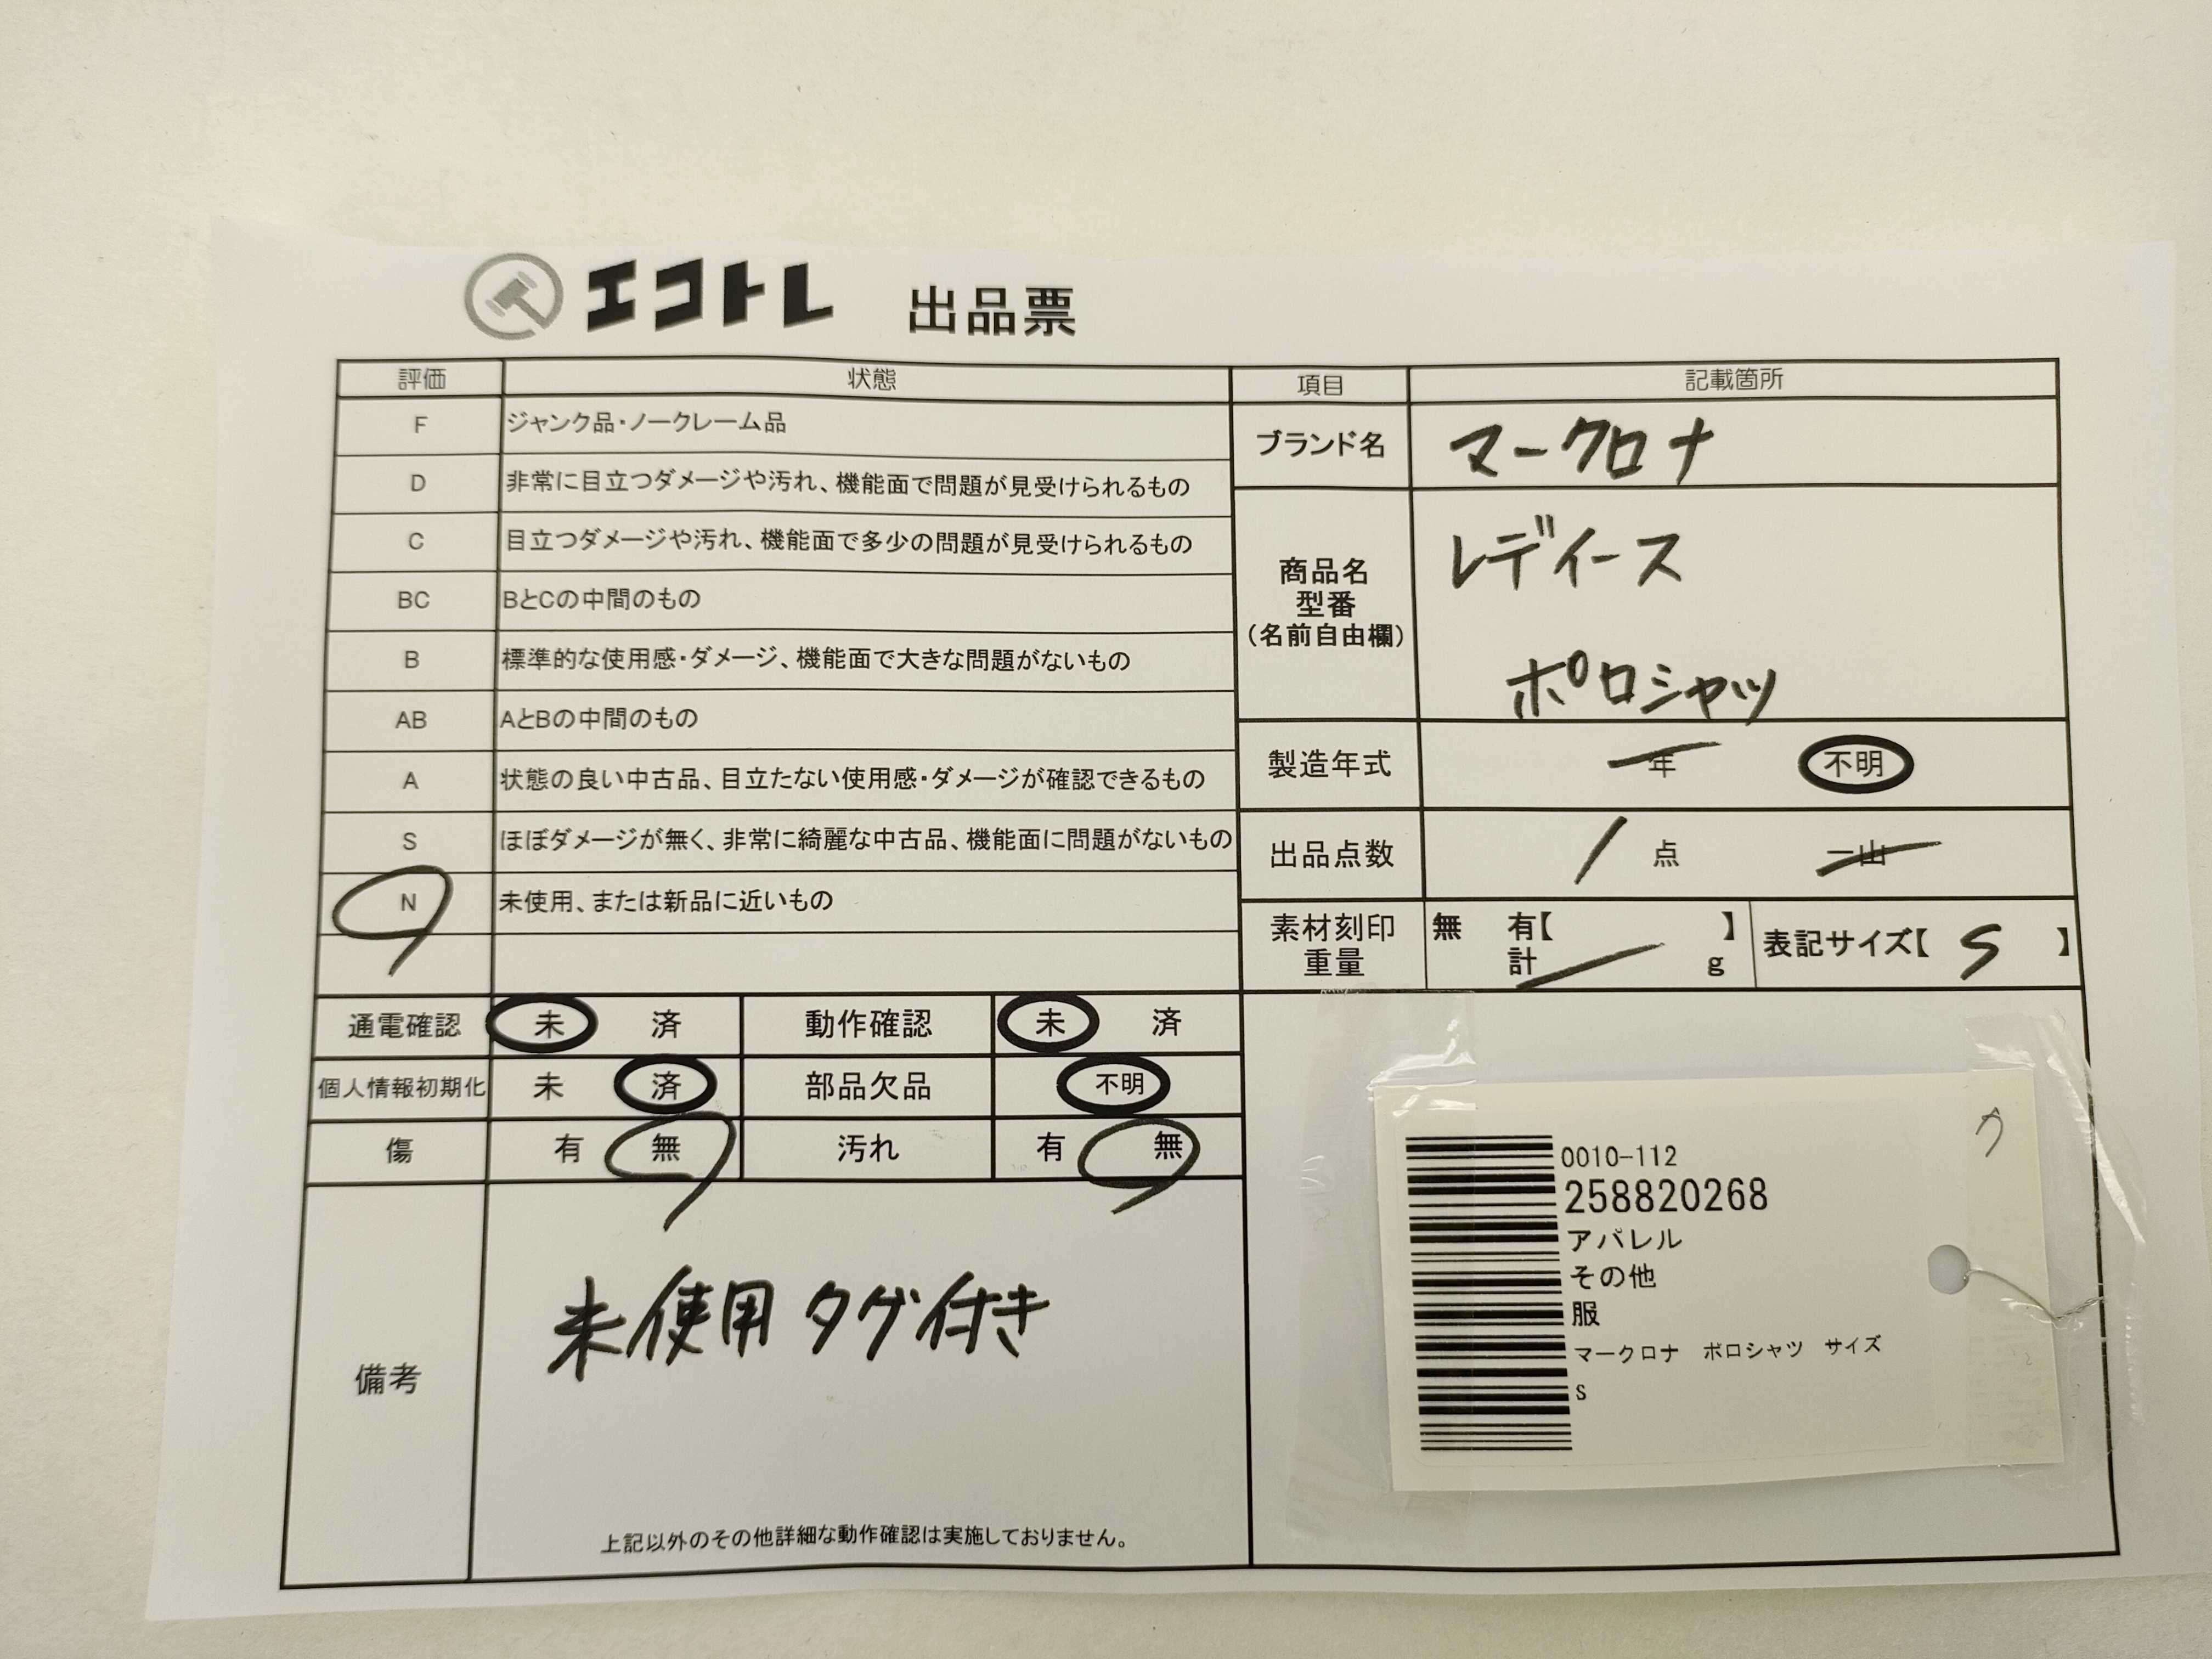 エコトレ 出品票
評価 状態
F ジャンク品・ノークレーム品
D 非常に目立つダメージや汚れ、機能面で問題が見受けられるもの
C 目立つダメージや汚れ、機能面で多少の問題が見受けられるもの
BC BとCの中間のもの
B 標準的な使用感・ダメージ、機能面で大きな問題がないもの
AB AとBの中間のもの
A 状態の良い中古品、目立たない使用感・ダメージが確認できるもの
S ほぼダメージが無く、非常に綺麗な中古品、機能面に問題がないもの
N 未使用、または新品に近いもの
項目 記載箇所
ブランド名 マークロナ
商品名
型番
(名前自由欄)
レディース
ポロシャツ
製造年式 年 不明
出品点数 1 点 一山
素材刻印
重量
無 有【 】
計 g
表記サイズ【 S 】
通電確認 未 済 動作確認 未 済
個人情報初期化 未 済 部品欠品 不明
傷 有 無 汚れ 有 無
備考
未使用 タグ付き
上記以外のその他詳細な動作確認は実施しておりません。
0010-112
258820268
アパレル
その他
服
マークロナ ポロシャツ サイズ
S